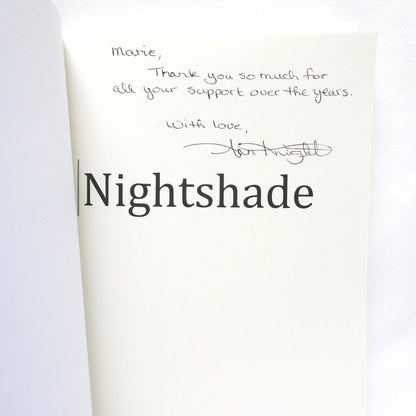 Marie,
Thank you so much for
all your support over the years.
With love,
Knight
Nightshade